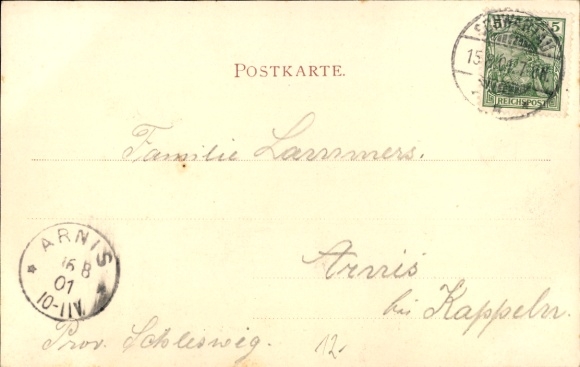 5
REICHSPOST
15.
POSTKARTE.
Familie Lammers.
ARNIS
16 8
01
10-11V.
Arnis
bei Kappeln.
Prov. Schleswig.
12.